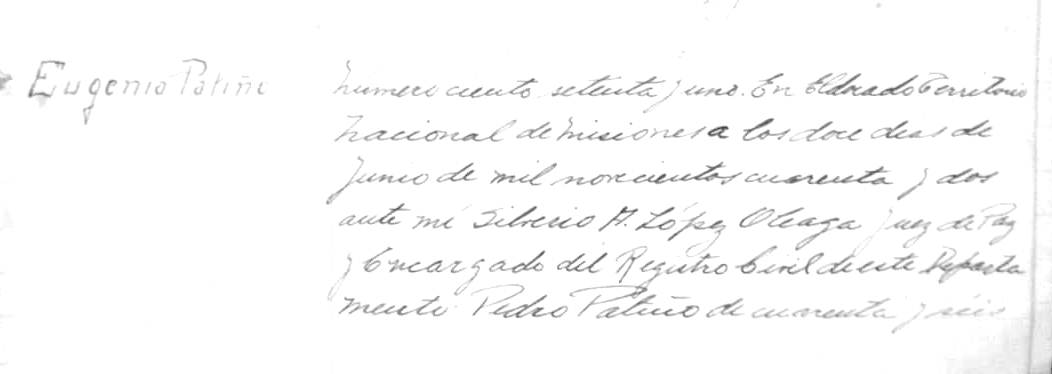 Eugenio Patiño
Numero ciento setenta y uno. En Eldorado Territorio
Nacional de Misiones a los doce dias de
Junio de mil novecientos cuarenta y dos
ante mi Silverio A. López Oleaga Juez de Paz
y Encargado del Registro Civil de este Departa
mento Pedro Patiño de cuarenta y séis